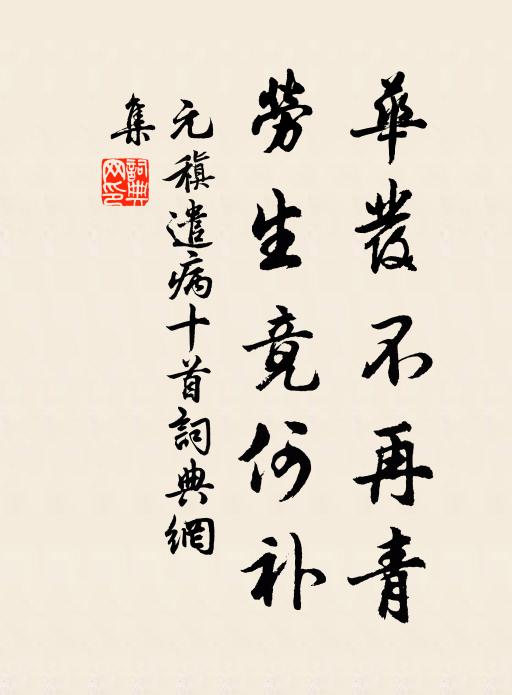 華發不再青
勞生竟何补
元稹遣病十首詞典網
集
詞典網印